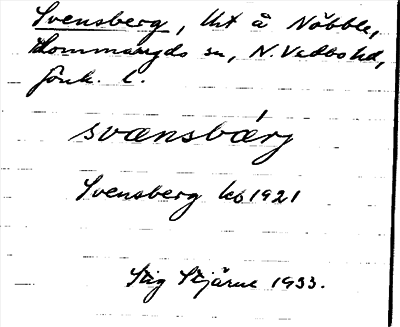 Svensberg, tht å Nöbble,
Hommanäs sn, N. Vedbo hd,
Jönk. l.
svænsbærj
Svensberg kb 1921
Stig Stjärne 1933.